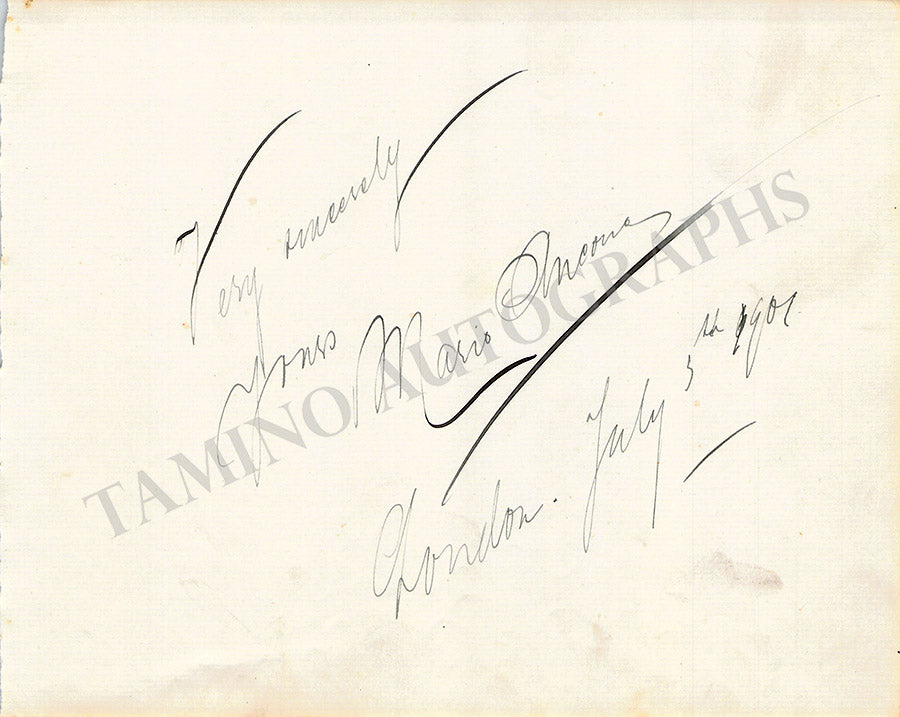 Very sincerely
Yours Mario Ancona
London. July 5th 1901
TAMINO AUTOGRAPHS